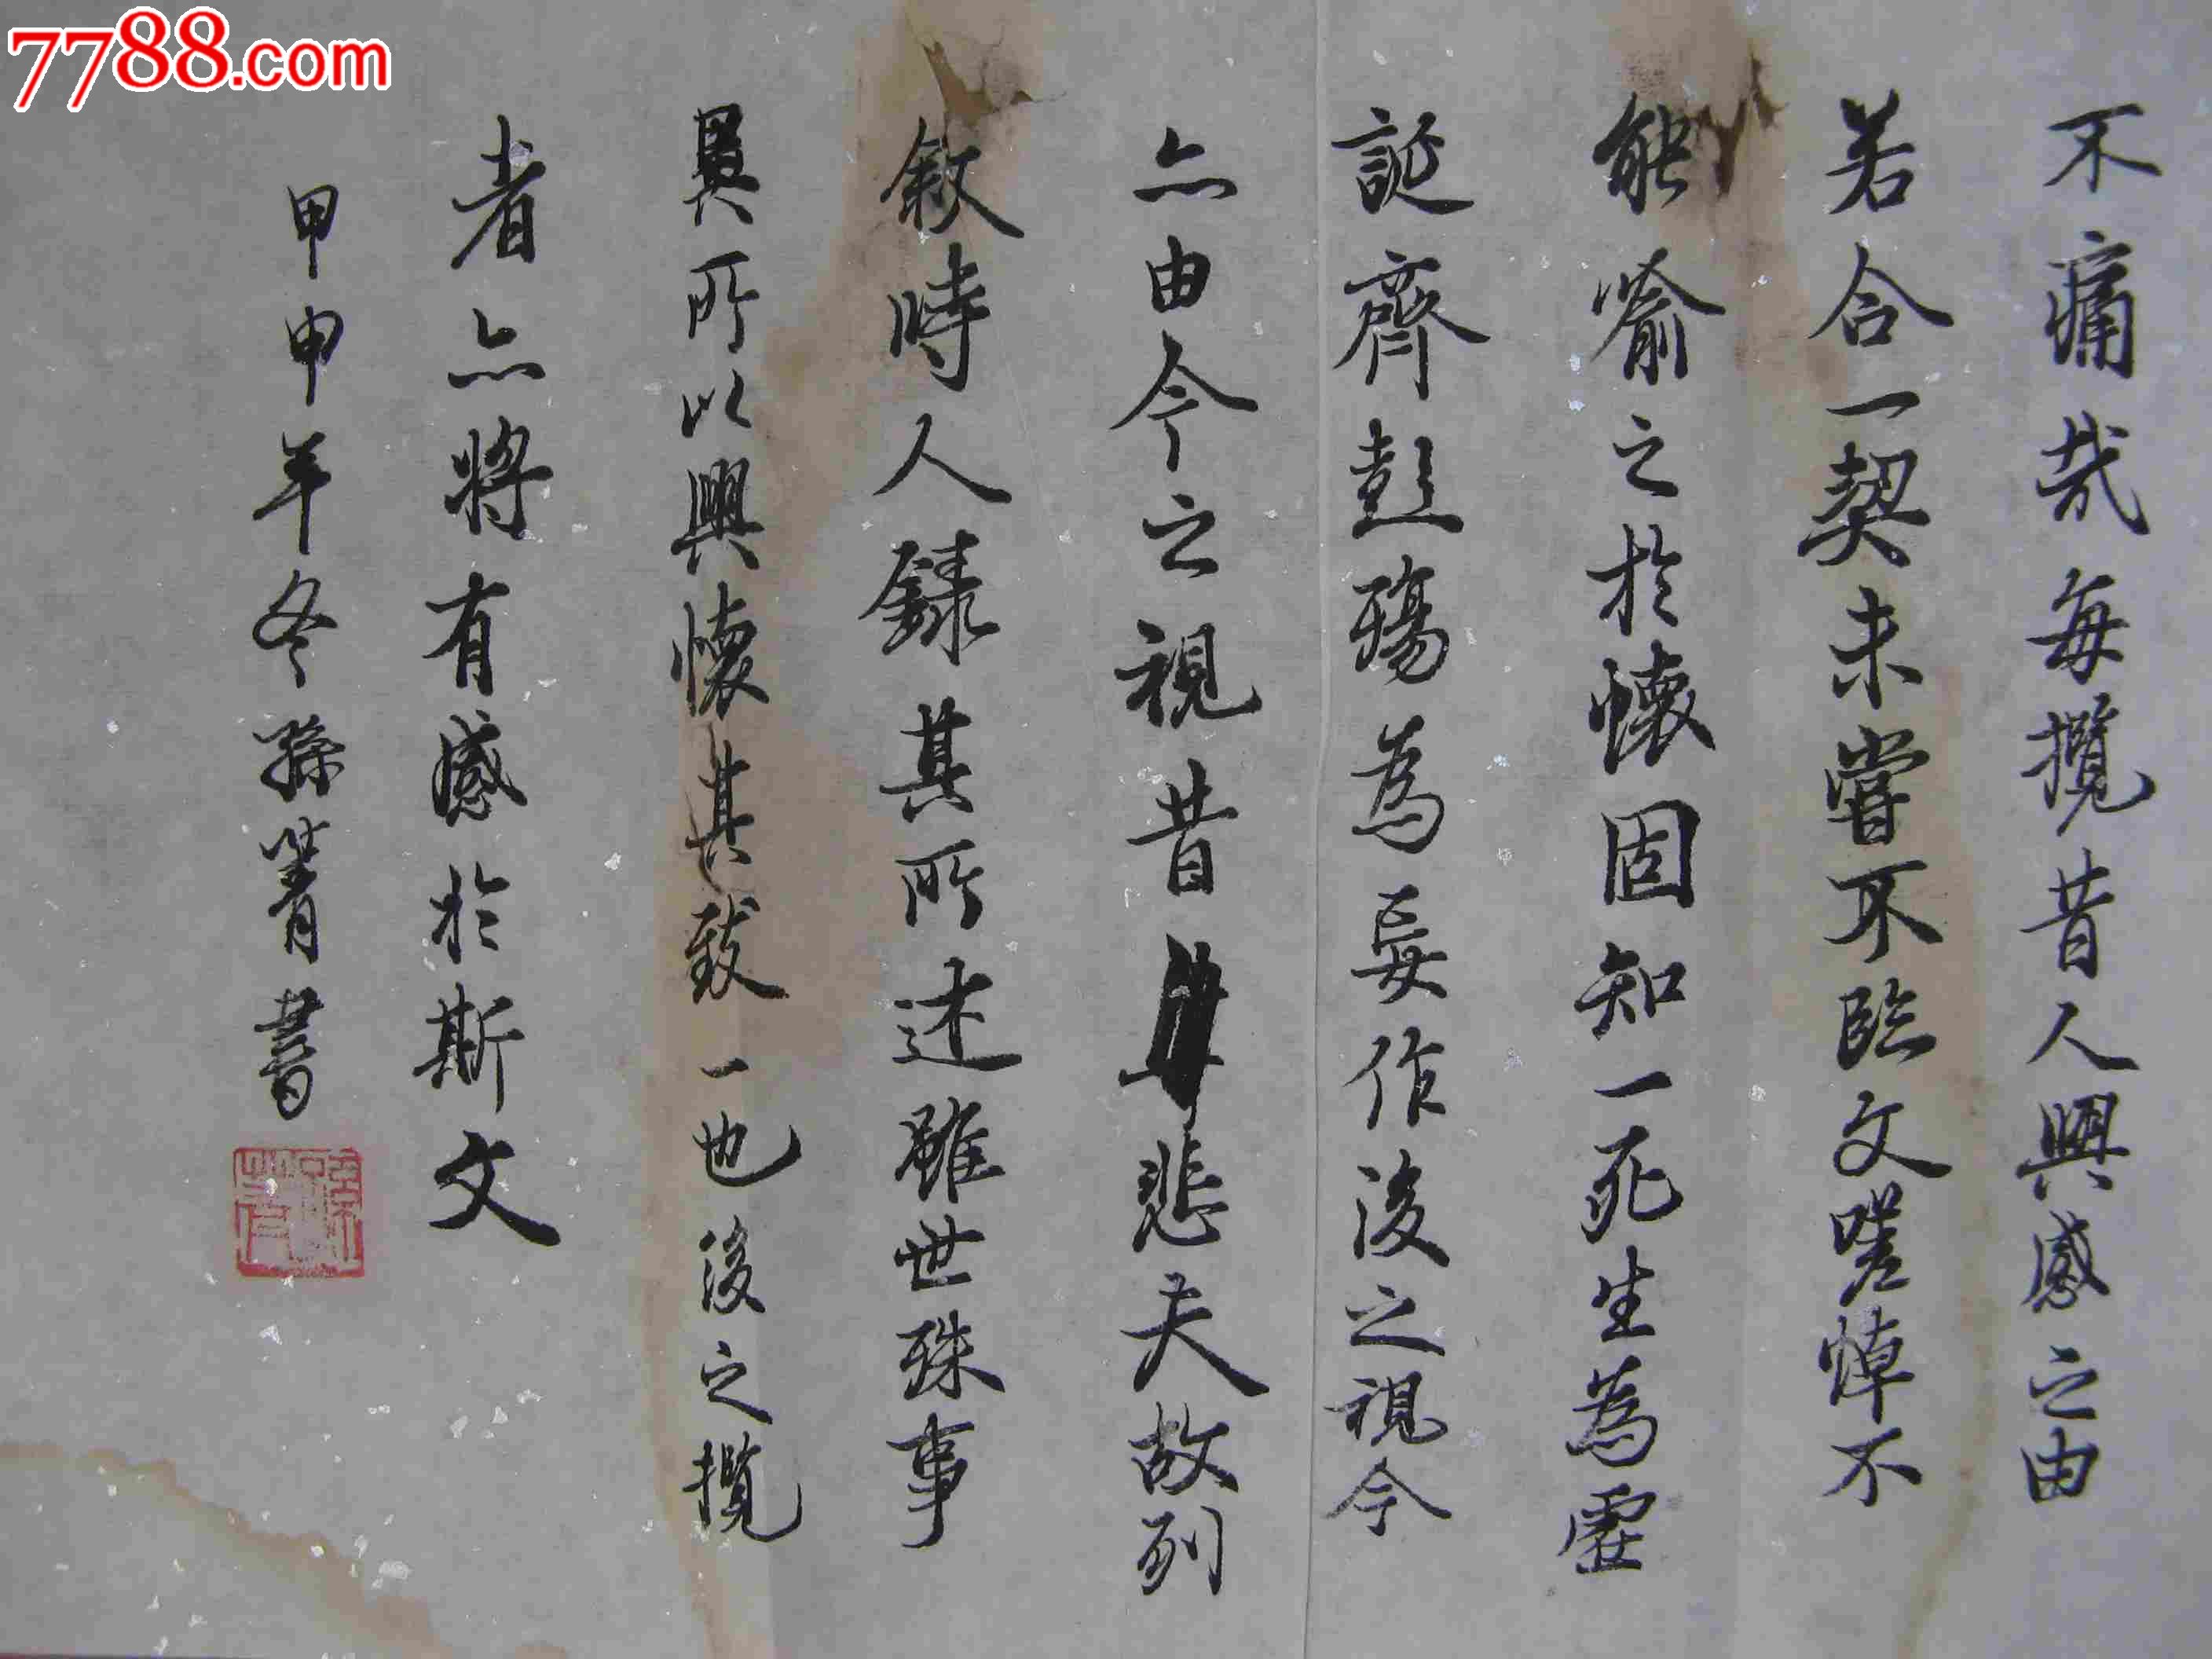 7788.com
不痛哉每攬昔人興感之由
若合一契未嘗不臨文嗟悼不
能喻之於懷固知一死生為虛
誕齊彭殤為妄作後之視今
亦由今之視昔悲夫故列
敘時人錄其所述雖世殊事
異所以興懷其致一也後之攬
者亦將有感於斯文
甲申年冬孫菁書